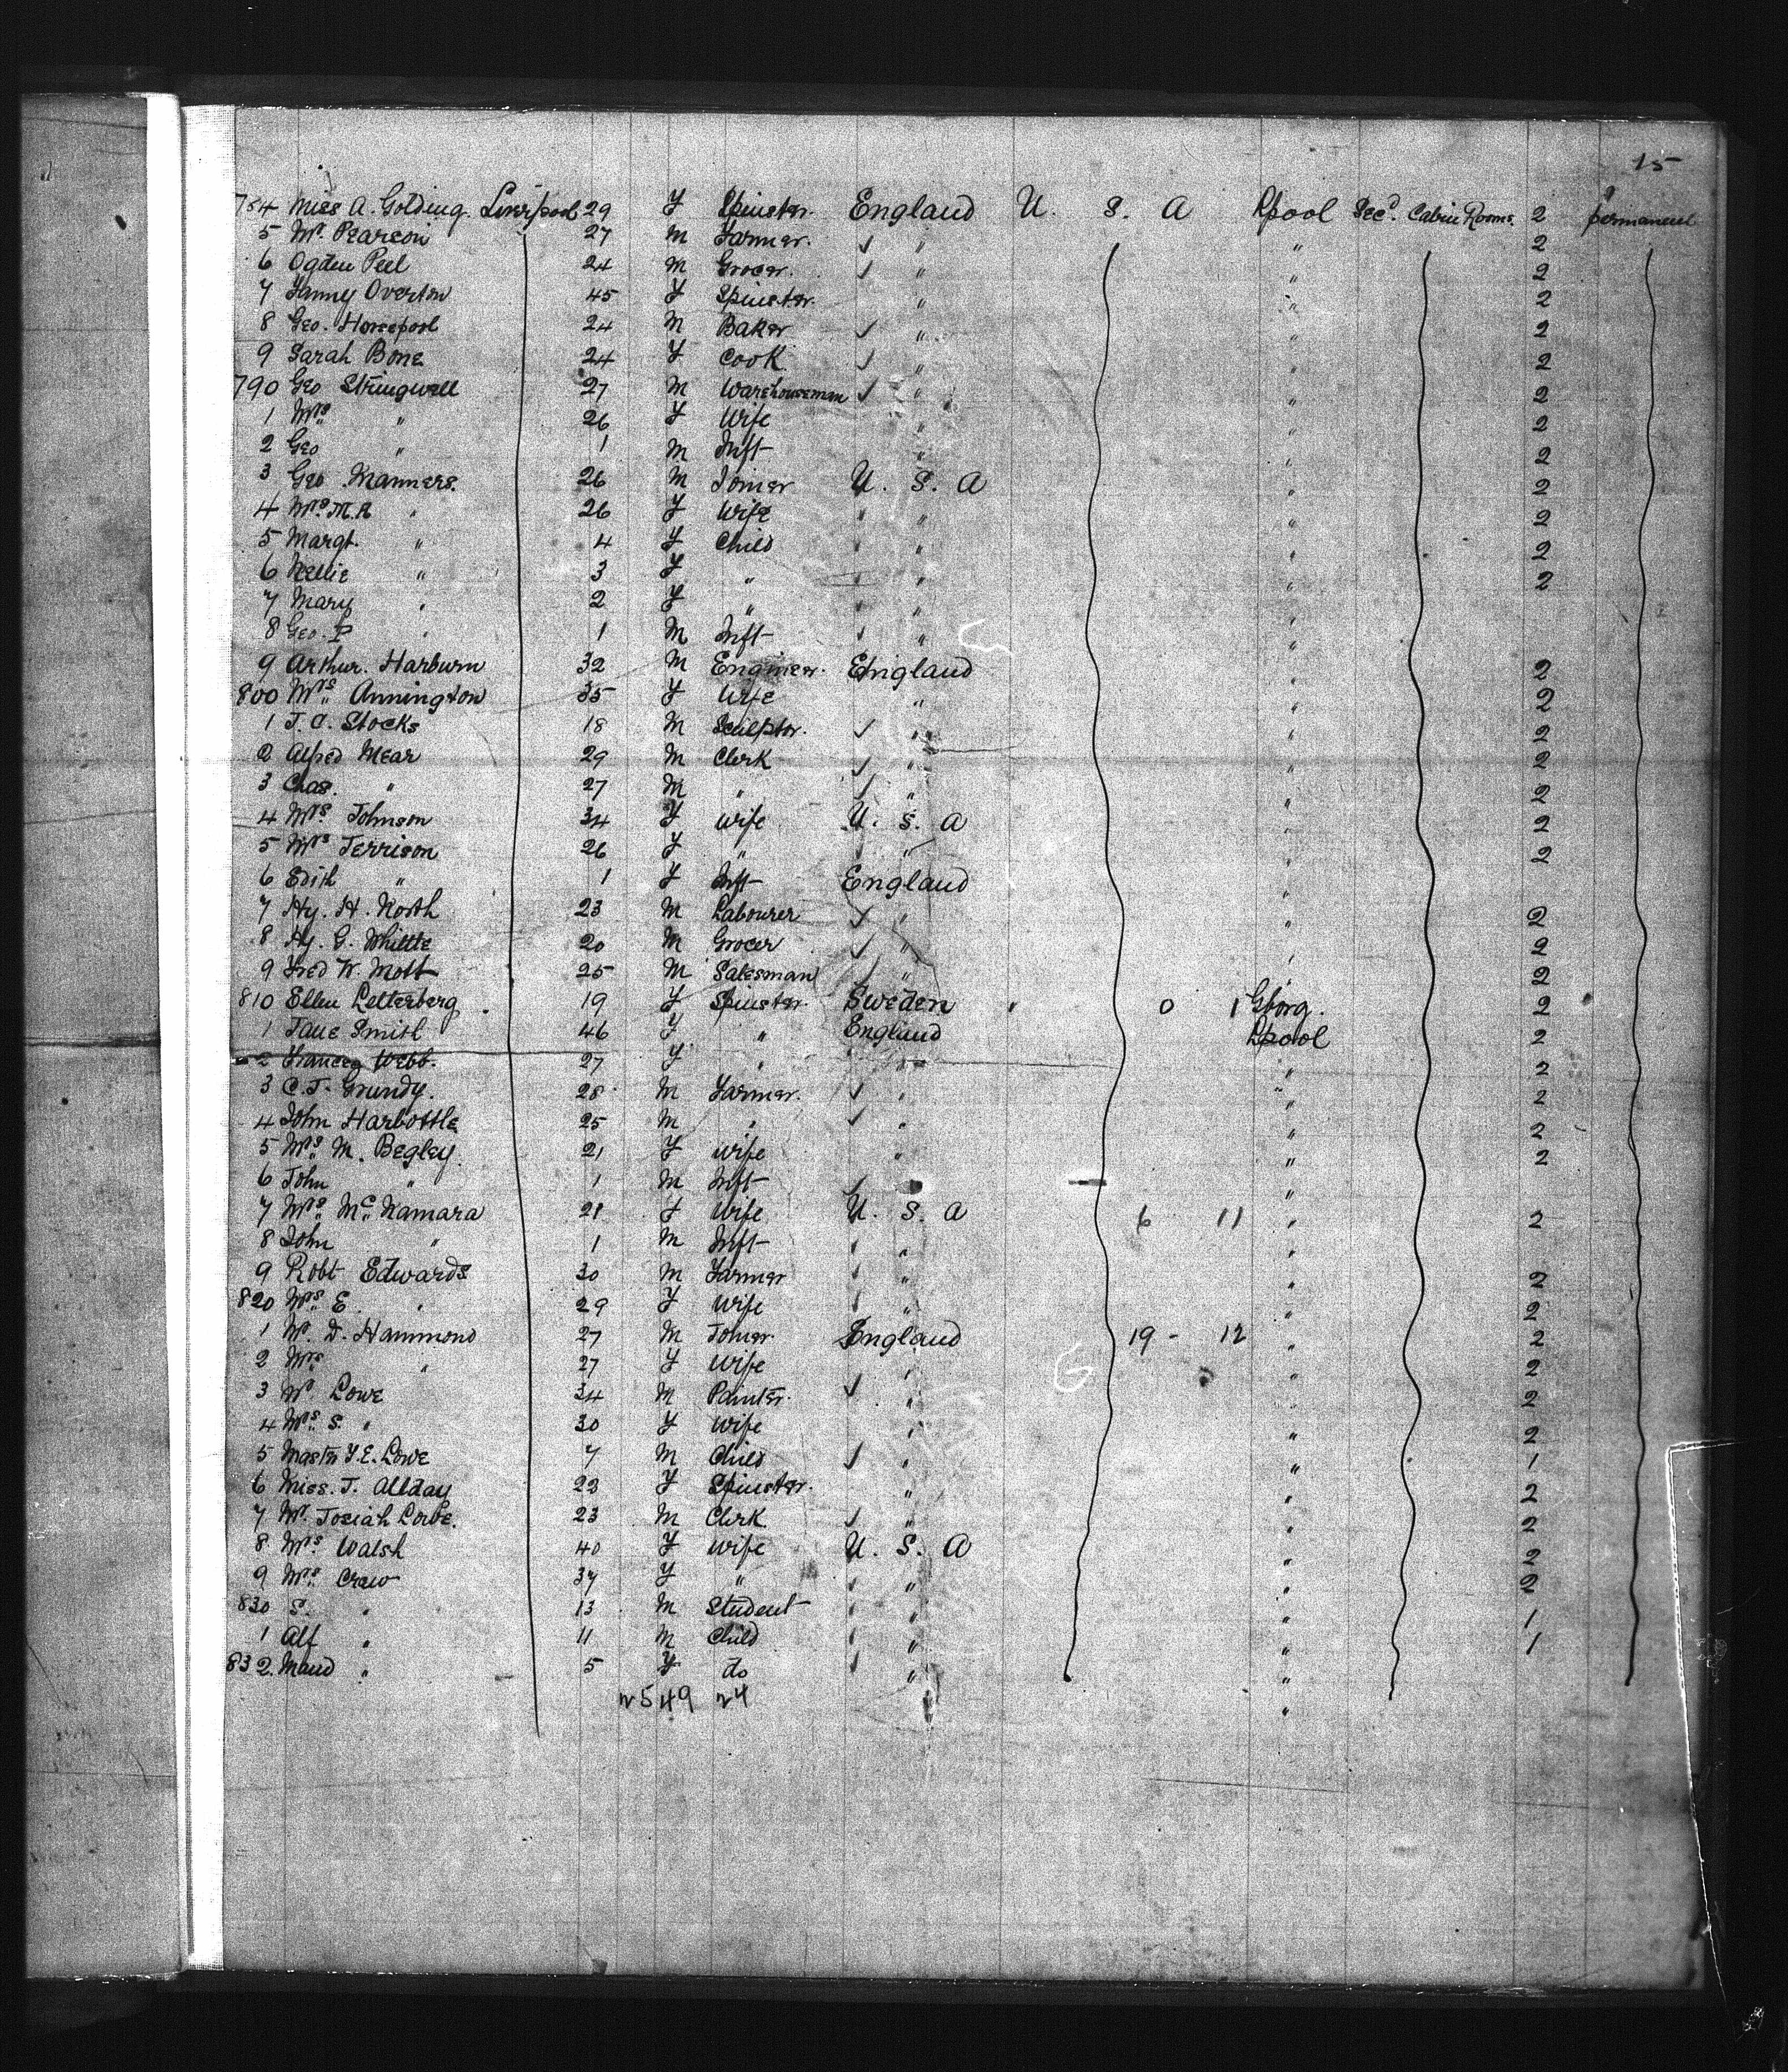 15
784 Miss A. Golding. Liverpool 29 F Spinster. England U. S. A Lpool Secd. Cabin Rooms. 2 permanent
5 Mr. Pearson 27 M Farmer. ✓ " " 2
6 Ogden Peel 24 M Grocer. ✓ " " 2
7 Fanny Overton 45 F Spinster. " " 2
8 Geo. Horsepool 24 M Baker ✓ " " 2
9 Sarah Bone 24 F Cook ✓ " " 2
790 Geo Stringwell 27 M Warehouseman ✓ " " 2
1 Mrs " 26 F Wife " " 2
2 Geo " 1 M Inft " " 2
3 Geo Manners. 26 M Joiner U. S. A " 2
4 Mrs. M.A " 26 F Wife " " " 2
5 Margt. " 4 F Child " " " 2
6 Nellie " 3 F " " " " 2
7 Mary " 2 F " " " "
8 Geo. P " 1 M Inft " " "
9 Arthur. Harburn 32 M Engineer. England " 2
800 Mrs. Annington 35 F Wife " " 2
1 J. A. Stocks 18 M Sculptor. ✓ " " 2
2 Alfred Mear 29 M Clerk ✓ " " 2
3 Chas. " 27 M " ✓ " " 2
4 Mrs Johnson 34 F Wife U. S. A " 2
5 Mrs Jerrison 26 F " " " " 2
6 Edith " 1 F Inft England "
7 Hy. H. North 23 M Labourer ✓ " " 2
8 Hy. G. Whittle 20 M Grocer ✓ " " 2
9 Fred W. Mott 25 M Salesman ✓ " " 2
810 Ellen Letterberg 19 F Spinster. Sweden " 0 1 Gborg. 2
1 Jane Smith 46 F " England Lpool 2
2 Frances Webb. 27 F " " " 2
3 C. J. Grundy. 28 M Farmer. ✓ " " 2
4 John Harbottle 25 M " ✓ " " 2
5 Mrs. M. Begley 21 F Wife " " 2
6 John " 1 M Inft ✓ "
7 Mrs. McNamara 21 F Wife U. S. A 6 11 " 2
8 John " 1 M Inft " " "
9 Robt Edwards 30 M Farmer " " " 2
820 Mrs. E. " 29 F Wife " " " 2
1 W. D. Hammond 27 M Joiner. England 19 - 12 " 2
2 Mrs " 27 F Wife " " 2
3 W. Lowe 34 M Painter. ✓ " " 2
4 Mrs. S. " 30 F Wife " " 2
5 Mastr F. E. Lowe 7 M Child ✓ " " 1
6 Miss. J. Allday 22 F Spinster. " " 2
7 Mr. Josiah Lowe. 23 M Clerk ✓ " " 2
8 Mrs. Walsh 40 F Wife U. S. A " 2
9 Mrs. Craw 37 F " " " " 2
830 S. " 13 M Student " " " 1
1 Alf " 11 M Child " " " 1
832. Maud " 5 F do " " "
25 49 24